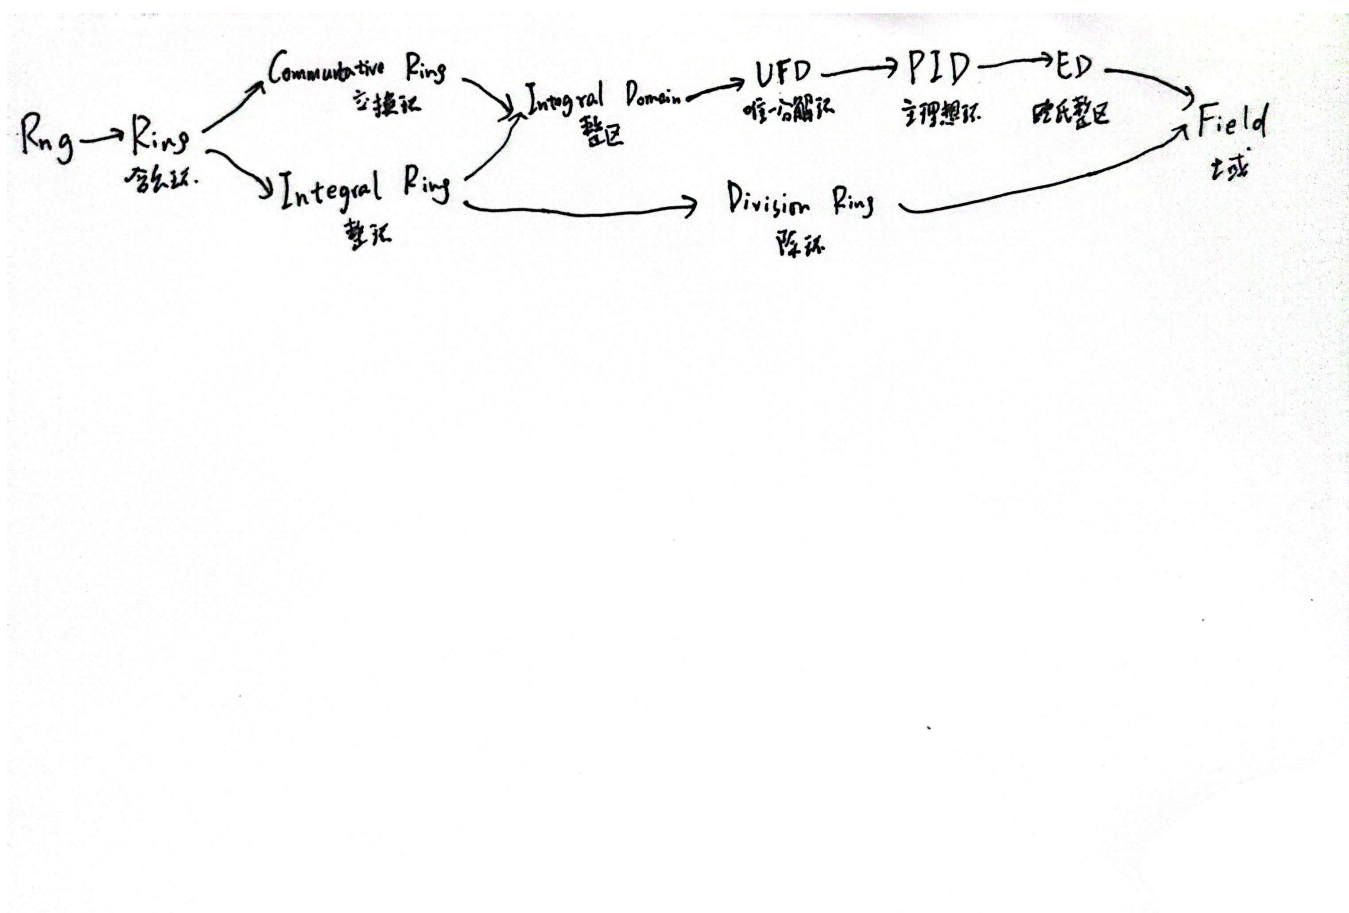 Rng
Ring
含幺环.
Commutative Ring
交换环
Integral Ring
整环
Integral Domain
整区
UFD
唯一分解环
PID
主理想环
ED
欧氏整区
Division Ring
除环
Field
域